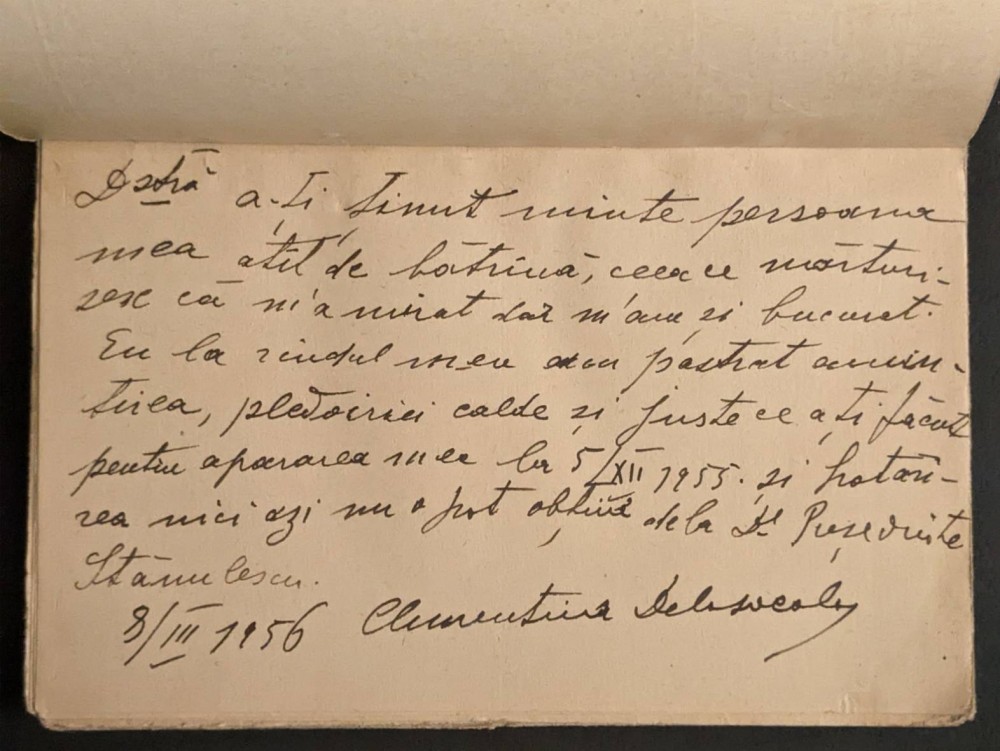 Dstră a-ți ținut minte persoana
mea atît de bătrînă, ceeace mărturi-
sesc că m'a mirat dar m'au și bucurat.
Eu la rîndul meu am păstrat amin-
tirea, pledoiriei calde și juste ce ați făcut
pentru apararea mea la 5/XII 1955. și hotărî-
rea nici azi nu o pot obține dela Dl. Președinte
Stănulescu.
8/III 1956 Clementina